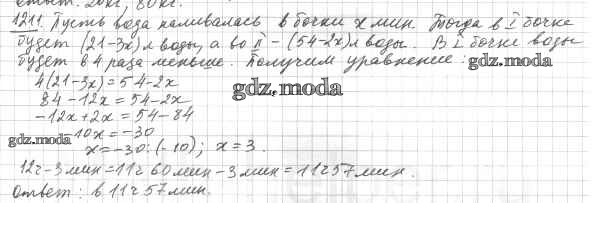 1211. Пусть вода наливалась в бочки x мин. Тогда в I бочке
будет (21-3x) л воды, а во II - (54-2x) л воды. В I бочке воды
будет в 4 раза меньше. Получим уравнение:
gdz.moda
4(21-3x) = 54-2x
84 - 12x = 54-2x
gdz.moda
-12x + 2x = 54 - 84
gdz.moda
-10x = -30
x = -30:(-10); x = 3.
12ч - 3 мин = 11ч 60 мин - 3 мин = 11ч 57 мин.
Ответ: в 11ч 57 мин.